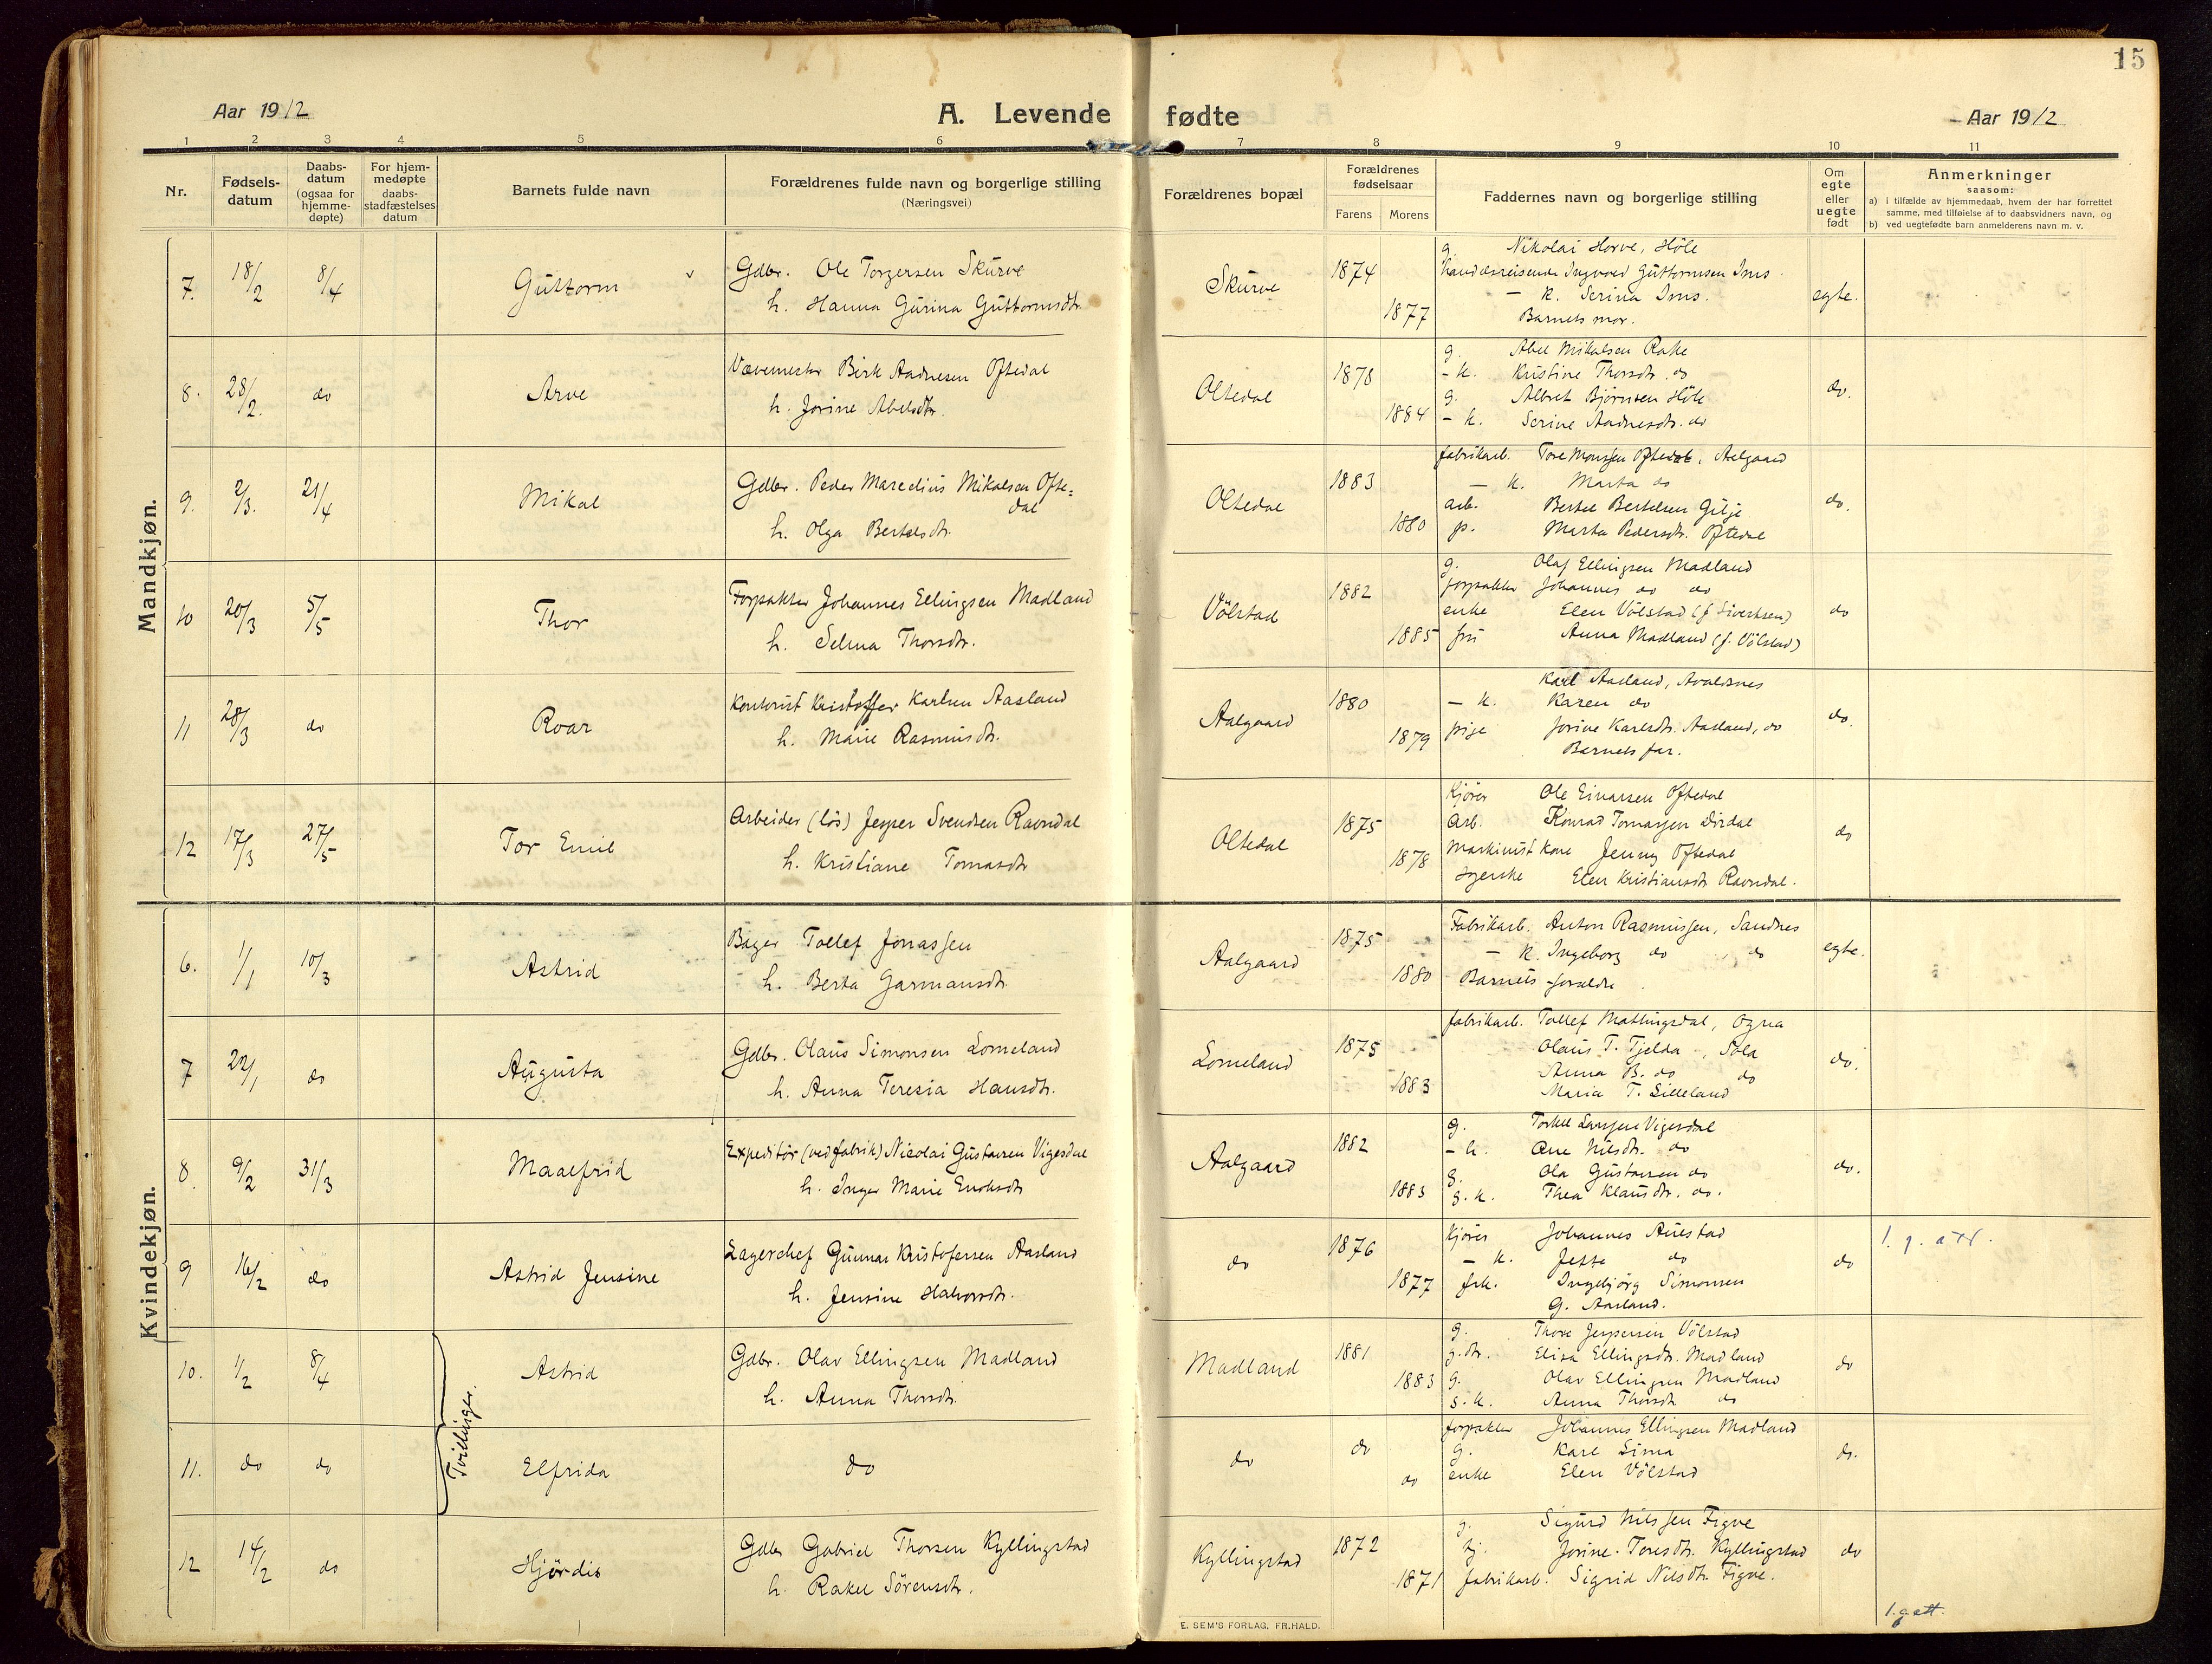 15
Aar 1912
A. Levende fødte
Aar 1912
1 2 3 4 5 6 7 8 9 10 11
Nr.
Fødsels-
datum
Daabs-
datum
(ogsaa for
hjemme-
døpte)
For hjem-
medøpte
daabs-
stadfæstelses
datum
Barnets fulde navn
Forældrenes fulde navn og borgerlige stilling
(Næringsvei)
Forældrenes bopæl
Forældrenes
fødselsaar
Farens Morens
Faddernes navn og borgerlige stilling
Om
egte
eller
uegte
født
Anmerkninger
saasom:
a) i tilfælde av hjemmedaab, hvem der har forrettet
samme, med tilføielse af to daabsvidners navn, og
b) ved uegtefødte barn anmelderens navn m. v.
Mandkjøn.
7. 18/2 8/4 Guttorm
Gdbr. Ole Torgersen Skurve
h. Hanna Gurina Guttormsdtr.
Skurve 1874 1877
g. Nikolai Horve, Høle
Handelsreisende Ingvald Guttormsen Ims
— k. Serina Ims.
Barnets mor.
egte.
8. 28/2. do Arve
Vævemester Birk Aadnesen Oftedal
h. Jorine Abelsdtr.
Oltedal 1878 1884
g. Abel Mikalsen Rake
- k. Kristine Thorsdtr. do
g. Albret Bjørnsen Høle
- k. Serine Aadnesdtr. do
do.
9. 2/3. 21/4 Mikal
Gdbr. Peder Marcelius Mikalsen Ofte=
dal
h. Olga Bertelsdtr.
Oltedal 1883 1880
fabrikarb. Tore Monsen Oftedal, Aalgaard
— k. Marta do
arb. Bertel Bertelsen Gilje
p. Marta Pedersdtr. Oftedal
do.
10 20/3 5/5 Thor
Forpakter Johannes Ellingsen Madland
h. Selma Thorsdtr.
Vølstad 1882 1885
g. Olaf Ellingsen Madland
forpakter Johannes do do
enke Elen Vølstad (f. Sivertsen)
fru Anna Madland (f. Vølstad)
do
11 28/3 do Roar
Kontorist Kristoffer Karlsen Aasland
h. Marie Rasmusdtr.
Aalgaard 1880 1879
Karl Aasland, Avaldsnes
— k. Karen do
pige Jorine Karlsdtr. Aasland, do
Barnets far.
do.
12 17/3 27/5 Tor Emil
Arbeider (løs) Jesper Svendsen Ravndal
h. Kristiane Tomasdtr
Oltedal 1875 1878
Kjører Ole Einarsen Oftedal
Arb. Konrad Tomassen Dirdal
Maskinist kone Jenny Oftedal
Elen Kristiansdtr Ravndal.
do
Kvindekjøn.
6. 1/1 10/3 Astrid
Bager Tollef Jonassen
h. Berta Garmansdtr.
Aalgaard 1875 1880
Fabrikarb. Anton Rasmussen, Sandnes
— k. Ingeborg do do
Barnets forældre
egte.
7 22/1 do Augusta
Gdbr. Olaus Simonsen Lomeland
h. Anna Teresia Hansdtr.
Lomeland 1875 1883
fabrikarb. Tollef Matningsdal, Ogna
Olaus T. Tjelda, Sola
Anna B. do do
Maria T. Lilleland
do.
8 9/2 31/3 Maalfrid
Expeditør (ved fabrik) Nicolai Gustavsen Vigesdal
h. Inger Marie Eriksdtr
Aalgaard 1882 1883
g. Torkel Larssen Vigesdal
- k. Ane Nilsdtr. do
g. Ola Gustavsen do
g. k. Thea Klausdtr. do.
do.
9 16/2 do Astrid Jensine
Lagerchef Gunnar Kristofersen Aasland
h. Jensine Halvorsdtr.
do 1876 1877
Kjører Johannes Auestad
— k. Jette do
frk. Ingebjørg Simonsen
G. Aasland.
do
1. g. att.
Tvillinger.
10. 1/2 8/4 Astrid
Gdbr. Olav Ellingsen Madland
h. Anna Thorsdtr.
Madland 1881 1883
g. Thore Jespersen Vølstad
g. dtr. Elisa Ellingsdtr. Madland
g. Olav Ellingsen Madland
g. k. Anna Thorsdtr do
do
11. do do Elfrida
do
do do do
forpakter Johannes Ellingsen Madland
g. Karl Lima
enke Elen Vølstad
do.
12 14/2 do Hjørdis
Gdbr Gabriel Thorsen Kyllingstad
h. Rakel Sørensdtr.
Kyllingstad 1872 1871
g. Sigurd Nilssen Figve
Jorine Toresdtr. Kyllingstad
fabrikarb. Sigrid Nilsdtr. Figve.
do
1. g. att.
E. SEM'S FORLAG, FR.HALD.